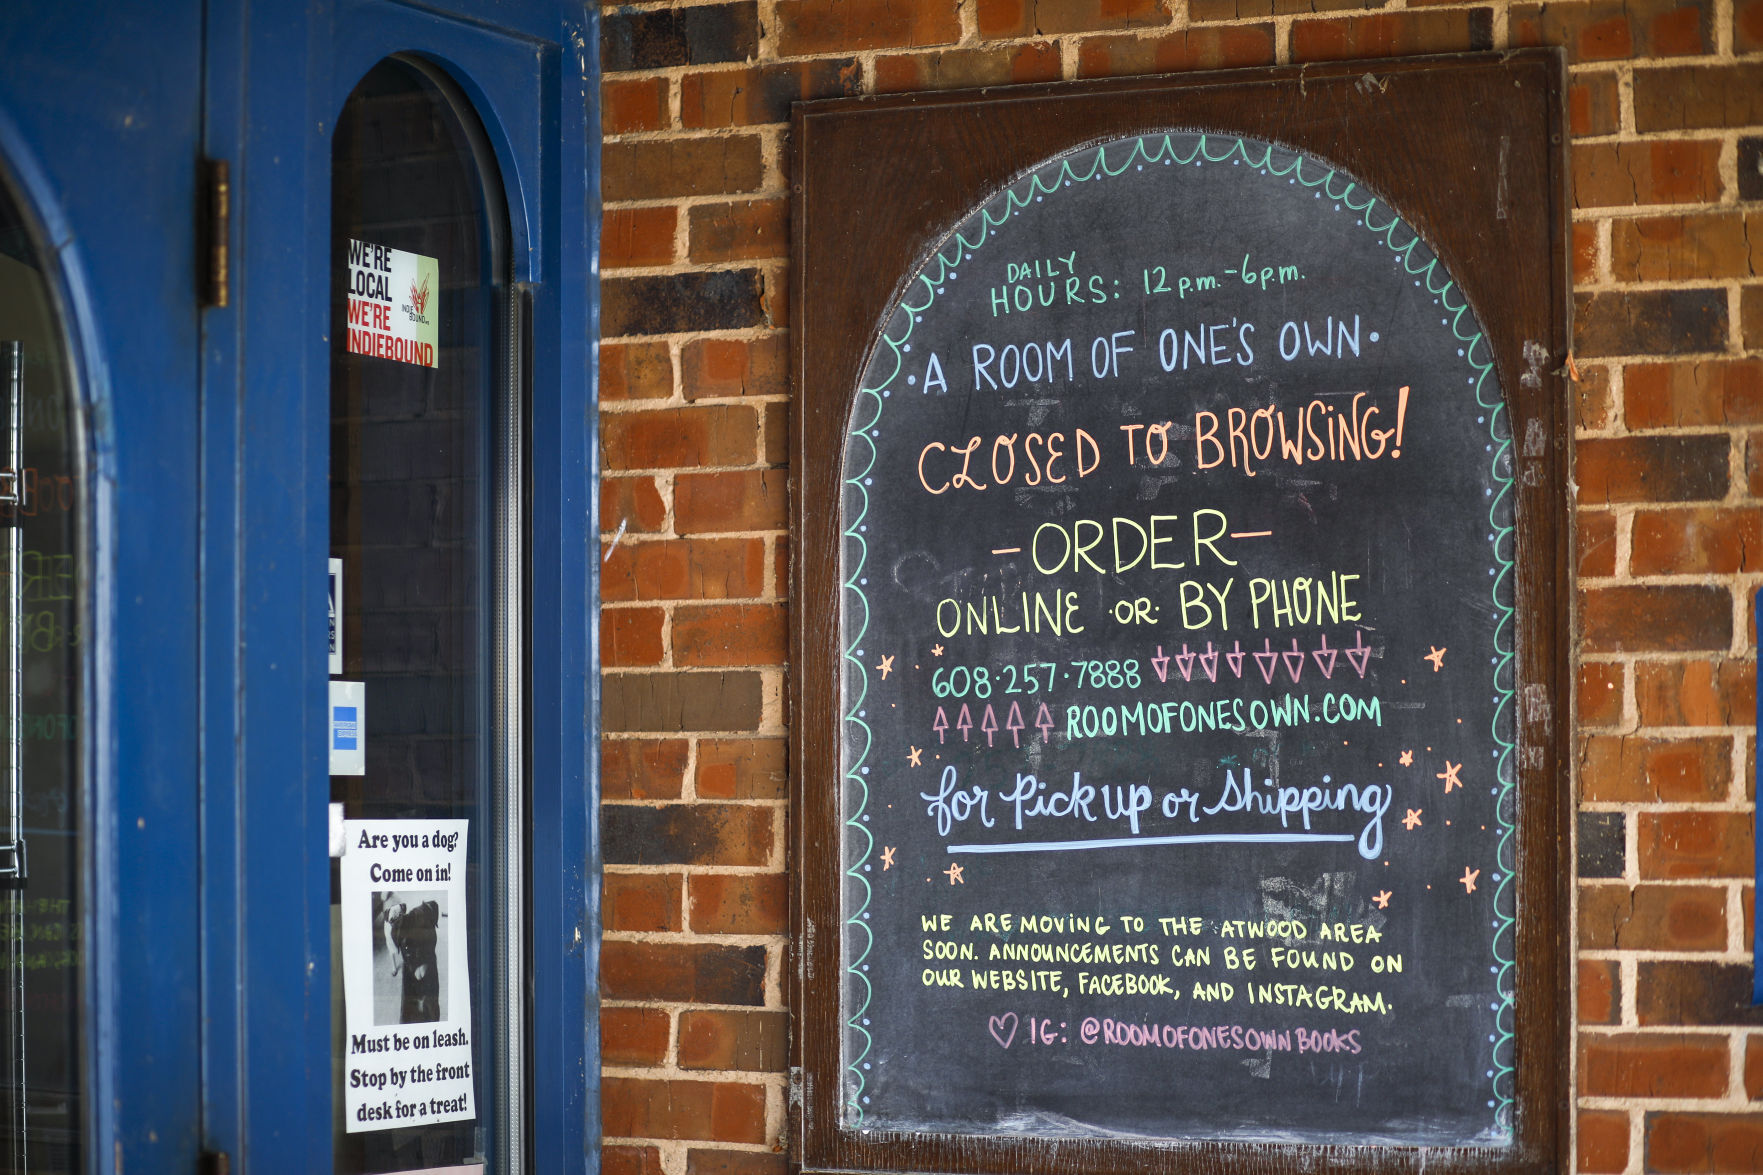 WE'RE
LOCAL
WE'RE
INDIEBOUND
INDIE
BOUND
AMERICAN
EXPRESS
Are you a dog?
Come on in!
Must be on leash.
Stop by the front
desk for a treat!
DAILY
HOURS: 12 p.m.-6p.m.
·A ROOM OF ONE'S OWN·
CLOSED TO BROWSING!
-ORDER-
ONLINE ·OR· BY PHONE
608·257·7888
ROOMOFONESOWN.COM
for Pickup or Shipping
WE ARE MOVING TO THE ATWOOD AREA
SOON. ANNOUNCEMENTS CAN BE FOUND ON
OUR WEBSITE, FACEBOOK, AND INSTAGRAM.
♡ IG: @ROOMOFONESOWNBOOKS